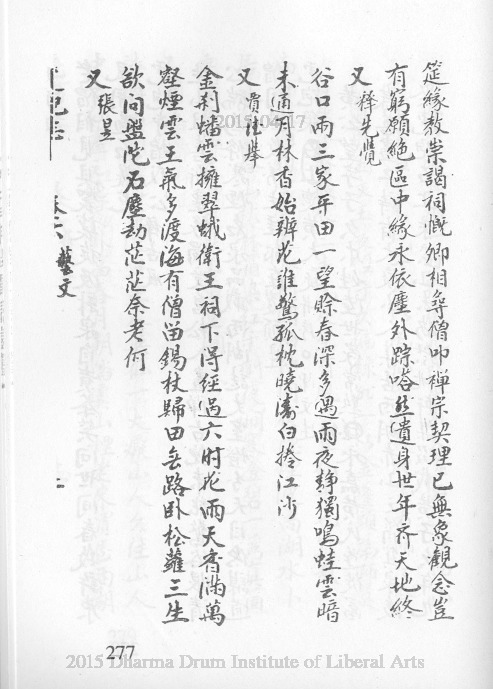 筵緣教崇謁祠慨卿相尋僧叩禪宗契理已無象觀念豈
有窮願絕區中緣永依塵外踪嗒然遺身世年齊天地終
又 釋先覺
谷口兩三家平田一望賒春深多遇雨夜靜獨鳴蛙雲暗
未通月林香始辨花誰驚孤枕曉濤白捲江沙
又 賈德舉
金刹蟠雲擁翠蛾衛王祠下得經過六时花雨天香滿萬
壑煙雲王氣多渡海有僧畄錫杖歸田無路臥松蘿三生
欲问盤陀石塵劫茫茫奈老何
又 張昱
藝文
277
2015-04-17
2015 Dharma Drum Institute of Liberal Arts